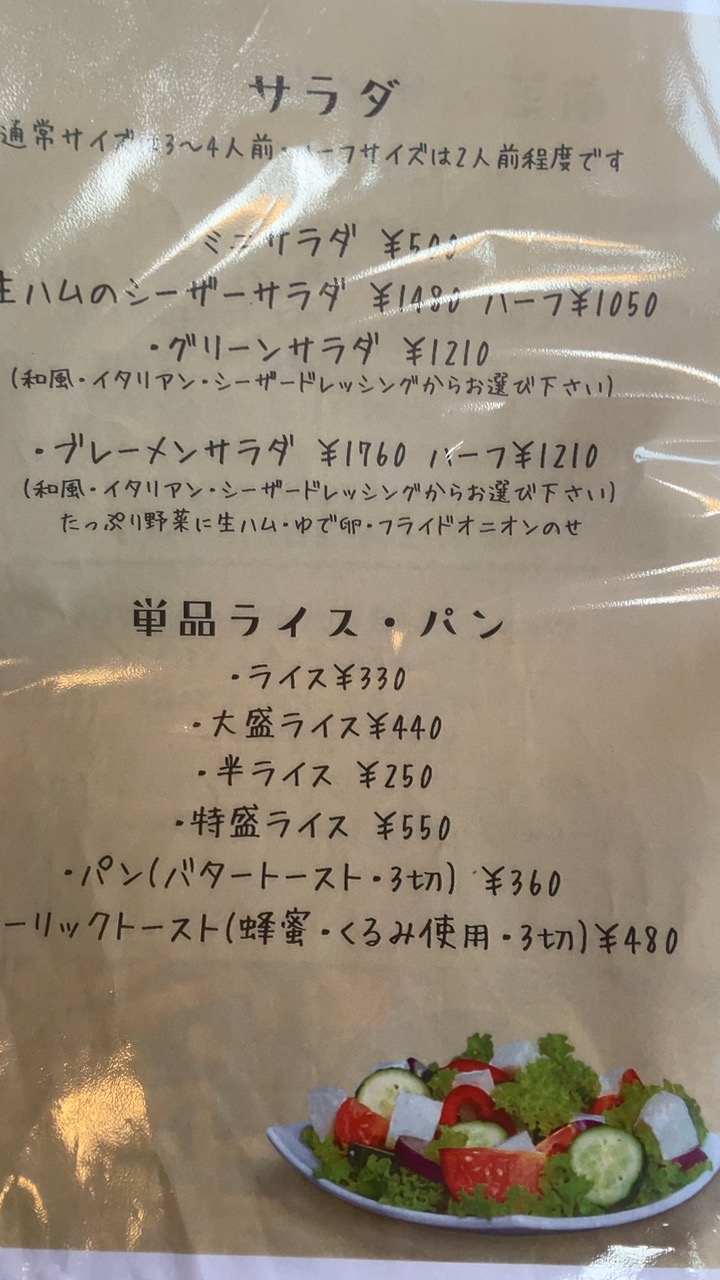 サラダ
通常サイズは3〜4人前・ハーフサイズは2人前程度です
ミニサラダ ¥500
生ハムのシーザーサラダ ¥1480 ハーフ¥1050
・グリーンサラダ ¥1210
(和風・イタリアン・シーザードレッシングからお選び下さい)
・ブレーメンサラダ ¥1760 ハーフ¥1210
(和風・イタリアン・シーザードレッシングからお選び下さい)
たっぷり野菜に生ハム・ゆで卵・フライドオニオンのせ
単品ライス・パン
・ライス¥330
・大盛ライス¥440
・半ライス ¥250
・特盛ライス ¥550
・パン(バタートースト・3切) ¥360
ーリックトースト(蜂蜜・くるみ使用・3切)¥480